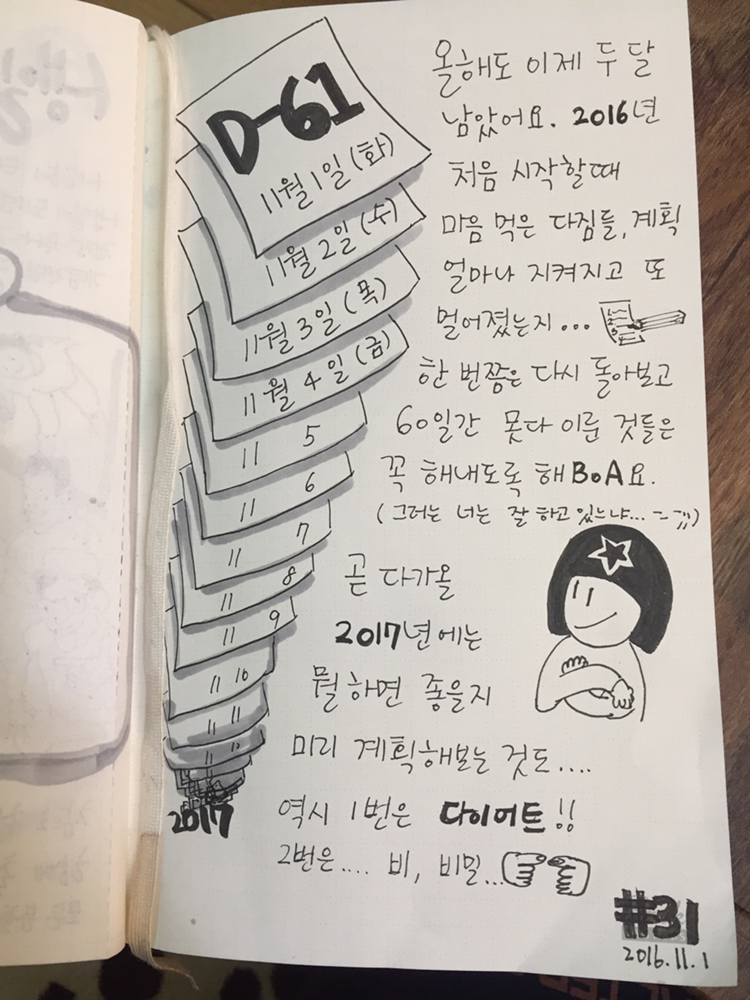 D-61
11월 1일 (화)
11월 2일 (수)
11월 3일 (목)
11월 4일 (금)
11 5
11 6
11 7
11 8
11 9
11 10
11 11
2017
올해도 이제 두 달
남았어요. 2016년
처음 시작할때
마음 먹은 다짐들, 계획
얼마나 지켜지고 또
멀어졌는지...
한 번쯤은 다시 돌아보고
60일간 못다 이룬 것들은
꼭 해내도록 해BoA요.
(그러는 너는 잘 하고 있느냐... -_-;;;)
곧 다가올
2017년에는
뭘 하면 좋을지
미리 계획해보는 것도....
역시 1번은 다이어트!!
2번은.... 비, 비밀...
#31
2016.11.1